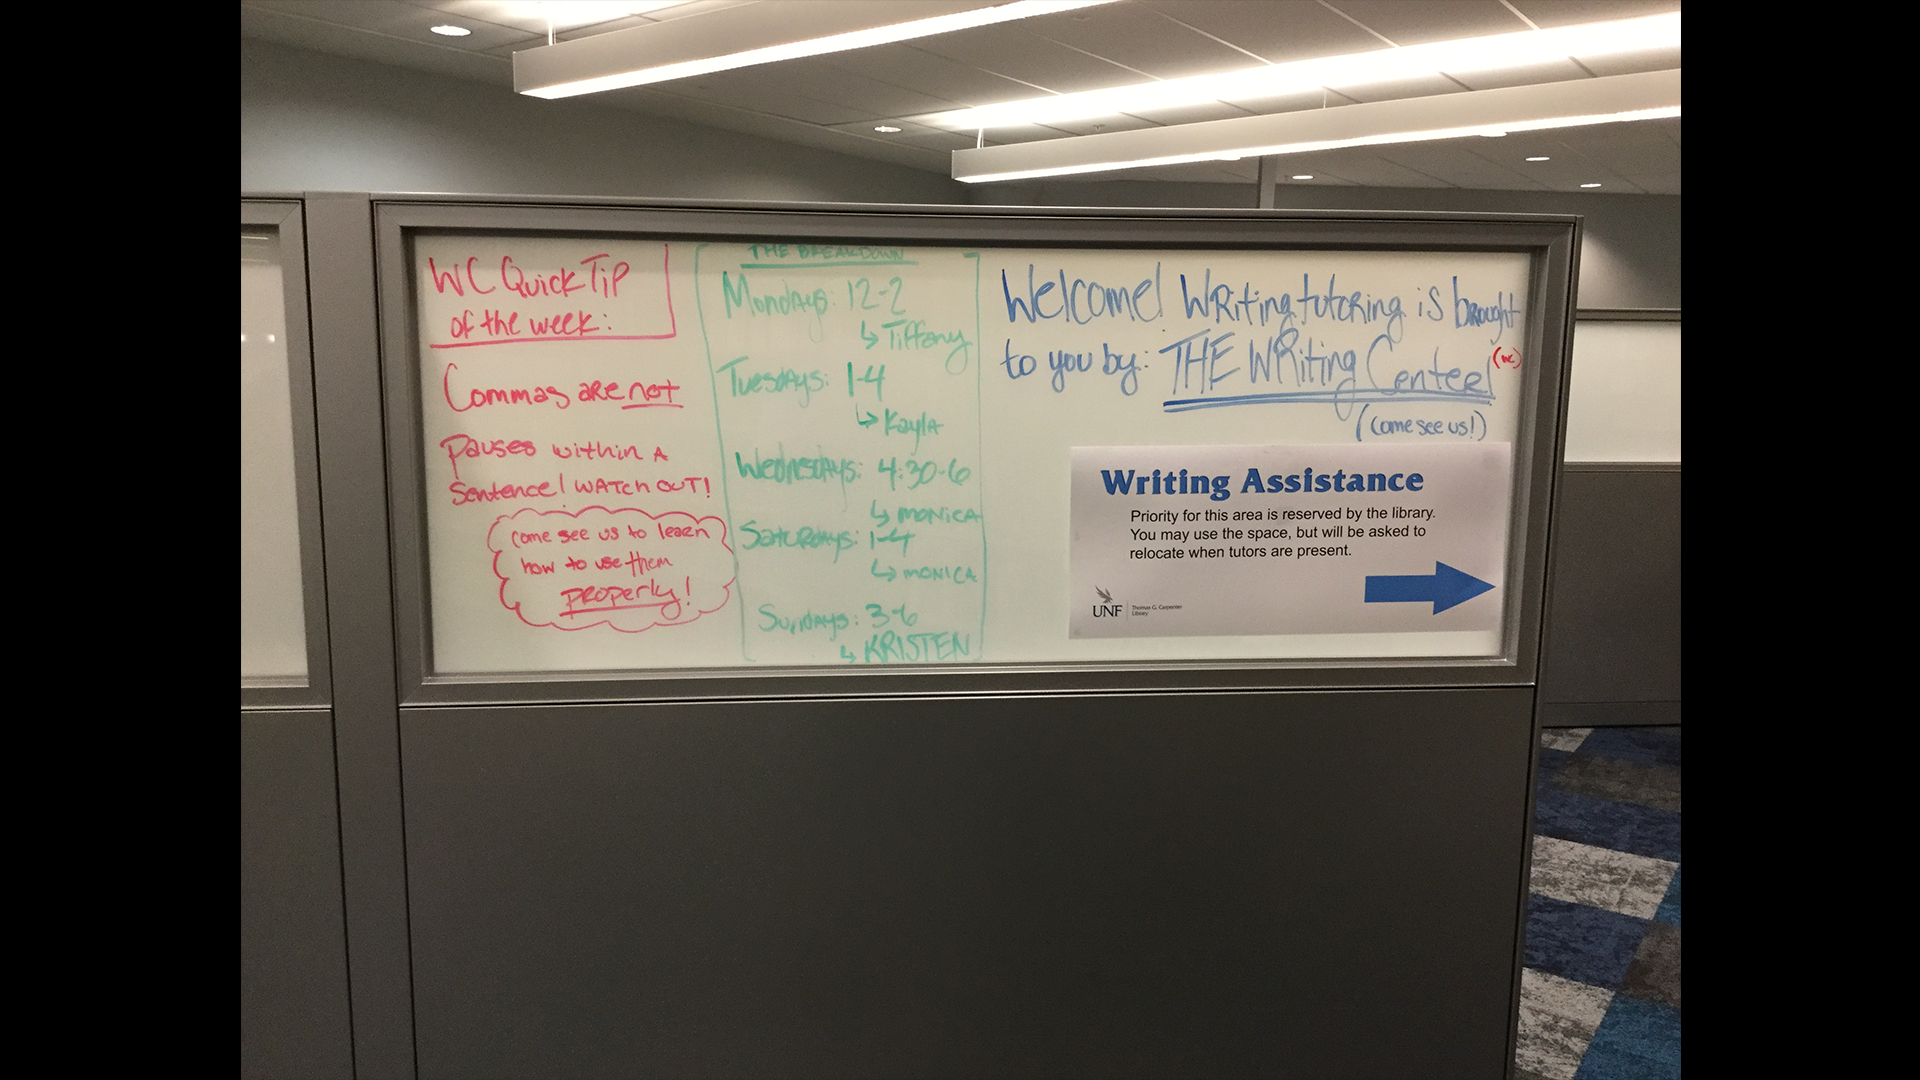 WC Quick Tip
of the week:
Commas are not
pauses within a
sentence! WATCH OUT!
come see us to learn
how to use them
properly!
THE BREAKDOWN
Mondays: 12-2
↳ Tiffany
Tuesdays: 1-4
↳ Kayla
Wednesdays: 4:30-6
↳ MONICA
Saturdays: 1-4
↳ MONICA
Sundays: 3-6
↳ KRISTEN
Welcome! Writing tutoring is brought
to you by: THE WRiting Center! (WC)
(come see us!)
Writing Assistance
Priority for this area is reserved by the library.
You may use the space, but will be asked to
relocate when tutors are present.
UNF
Thomas G. Carpenter
Library